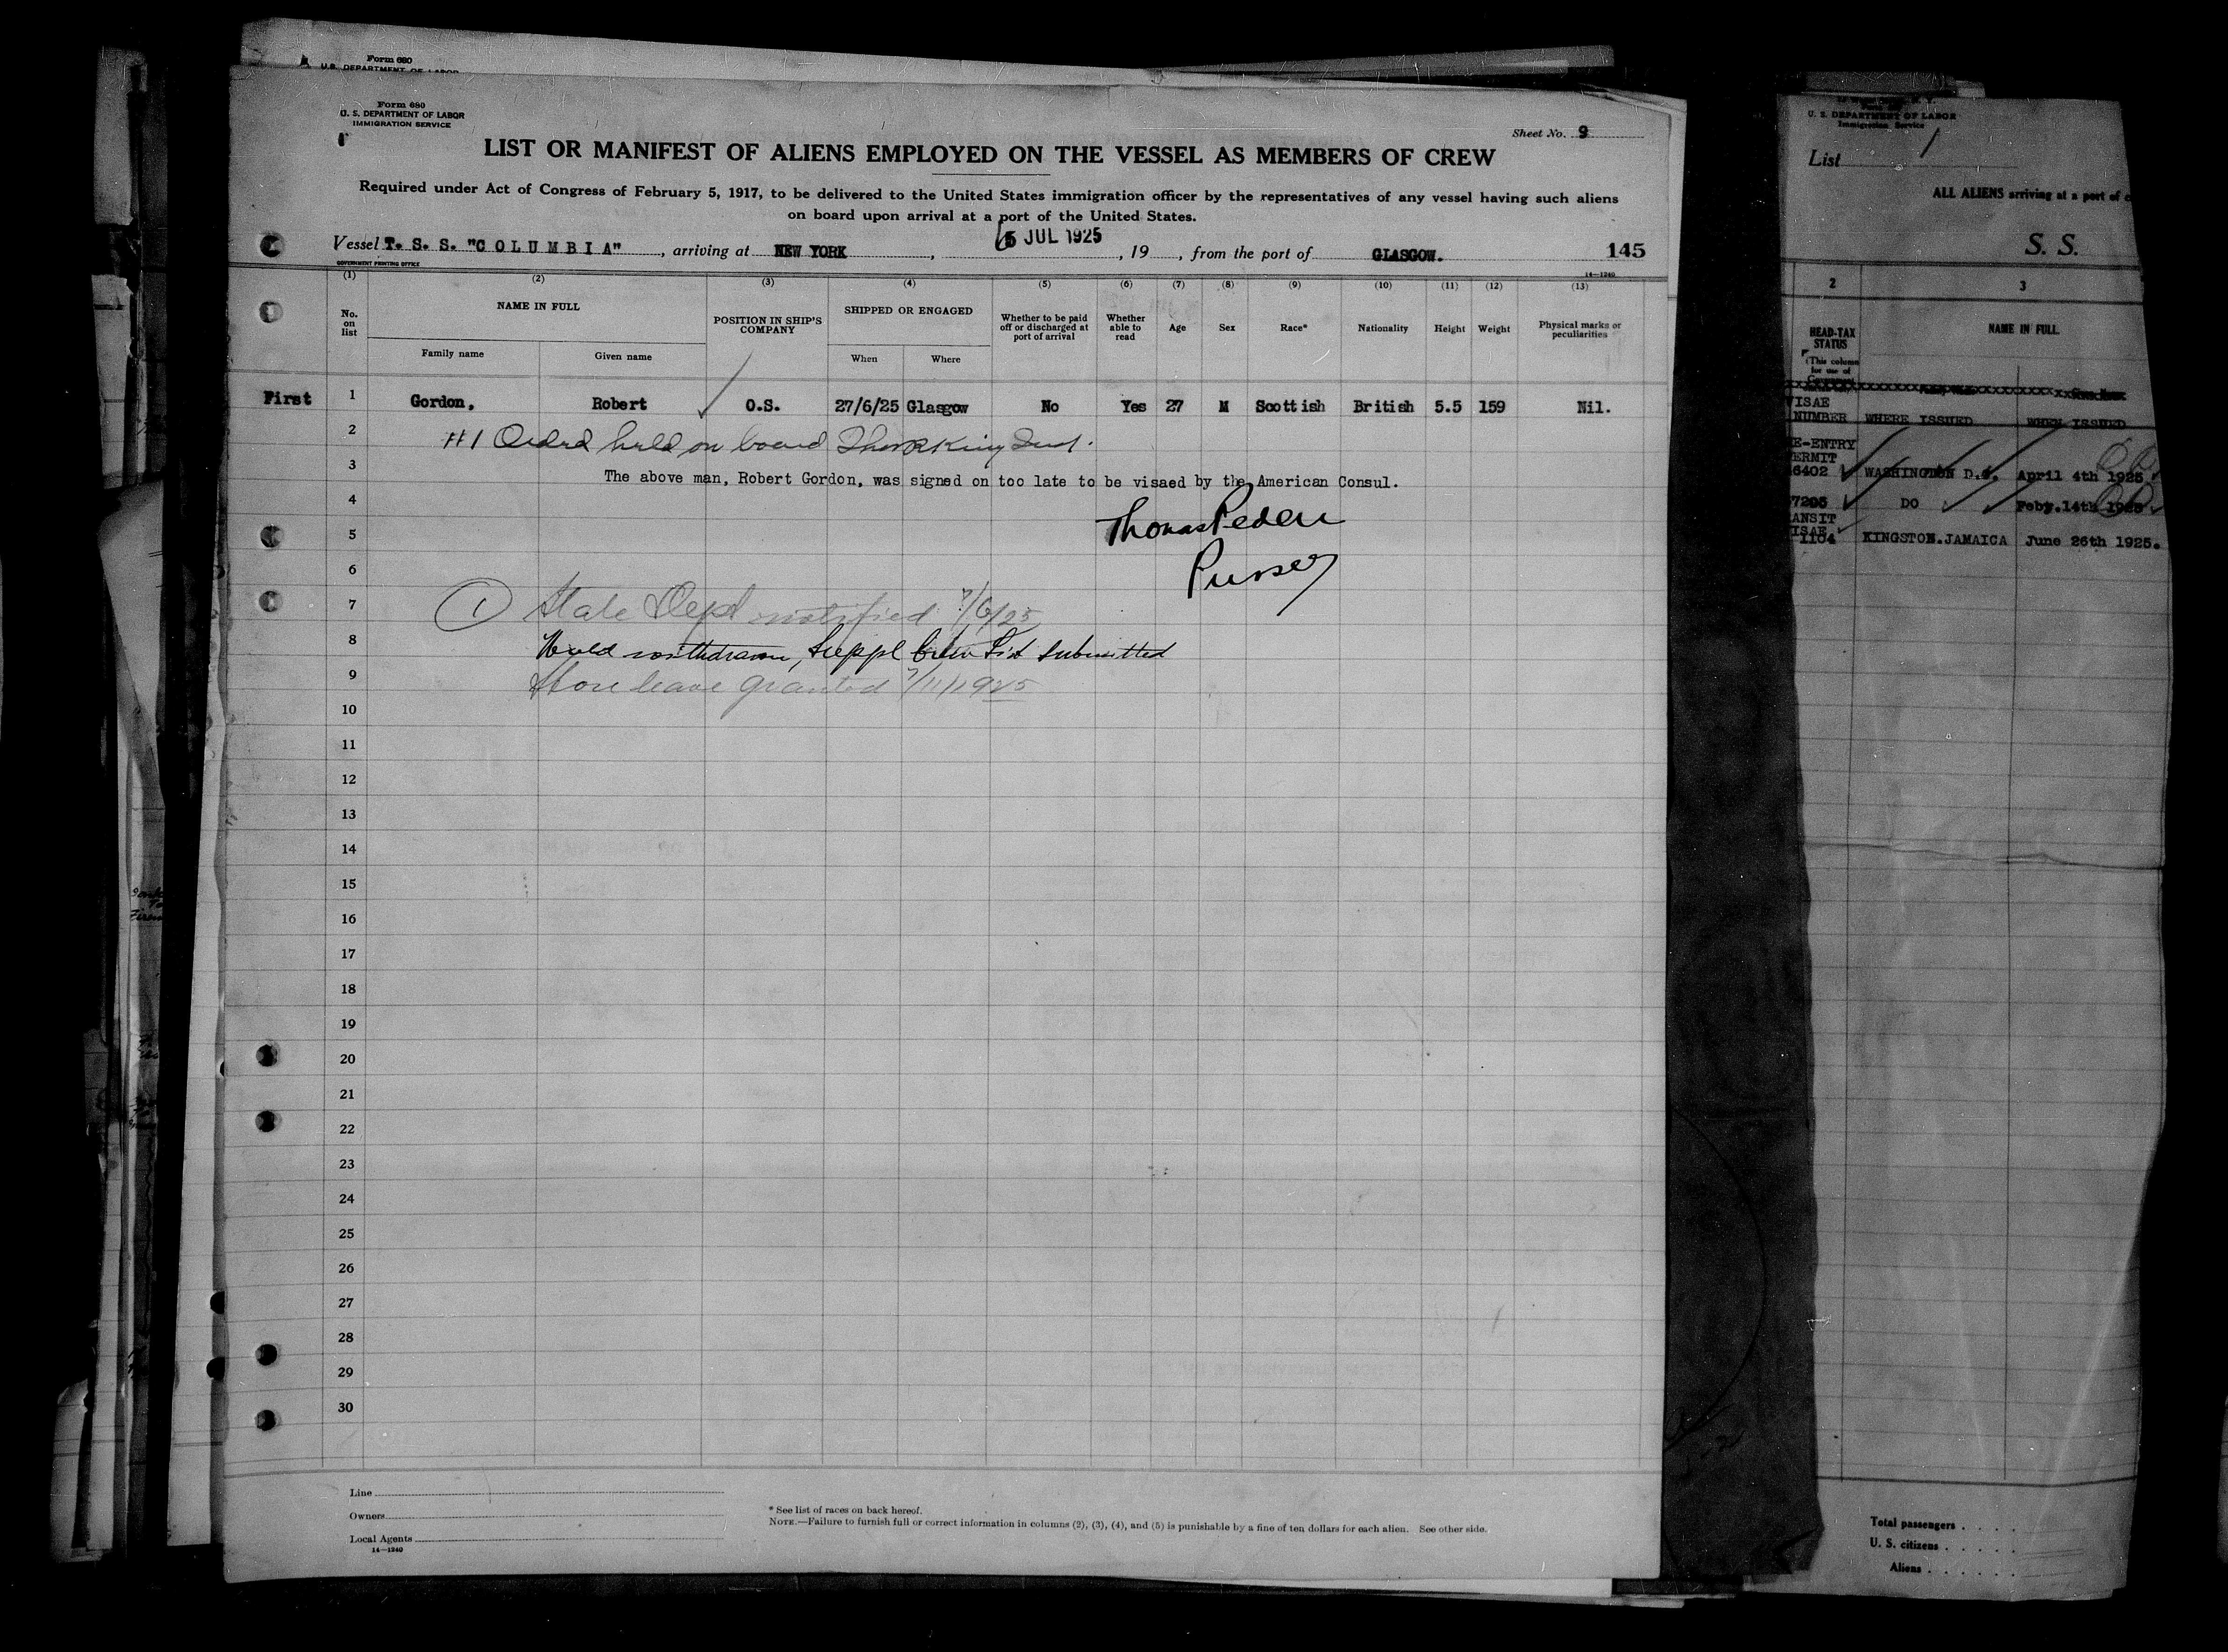 Form 680
U. S. DEPARTMENT OF LABOR
Form 680
U. S. DEPARTMENT OF LABOR
IMMIGRATION SERVICE
Sheet No. 9
LIST OR MANIFEST OF ALIENS EMPLOYED ON THE VESSEL AS MEMBERS OF CREW
Required under Act of Congress of February 5, 1917, to be delivered to the United States immigration officer by the representatives of any vessel having such aliens
on board upon arrival at a port of the United States.
Vessel T. S. S. "COLUMBIA", arriving at NEW YORK, 6 JUL 1925, 19 , from the port of GLASGOW. 145
GOVERNMENT PRINTING OFFICE
14—1240
(1) (2) (3) (4) (5) (6) (7) (8) (9) (10) (11) (12) (13)
No. on list
NAME IN FULL
Family name
Given name
POSITION IN SHIP'S COMPANY
SHIPPED OR ENGAGED
When
Where
Whether to be paid off or discharged at port of arrival
Whether able to read
Age
Sex
Race*
Nationality
Height
Weight
Physical marks or peculiarities
First 1 Gordon, Robert O.S. 27/6/25 Glasgow No Yes 27 M Scottish British 5.5 159 Nil.
2 #1 Ordered held on board
3 The above man, Robert Gordon, was signed on too late to be visaed by the American Consul.
4
Thomas Peden
5
Purser
6
7 1 State Dept notified 7/6/25
8 withdrawn, Suppl Crew List submitted
9 Shore leave granted 7/11/1925
10
11
12
13
14
15
16
17
18
19
20
21
22
23
24
25
26
27
28
29
30
Line
Owners
Local Agents
14—1240
* See list of races on back hereof.
NOTE.—Failure to furnish full or correct information in columns (2), (3), (4), and (5) is punishable by a fine of ten dollars for each alien. See other side.
U. S. DEPARTMENT OF LABOR
Immigration Service
List 1
ALL ALIENS arriving at a port of
S. S.
2 3
HEAD-TAX STATUS
(This column for use of
NAME IN FULL
VISAE NUMBER WHERE ISSUED WHEN ISSUED
E-ENTRY
ERMIT
6402 WASHINGTON D.C. April 4th 1925
7295 DO Feby.14th 1925
ANSIT
ISAE
1104 KINGSTON.JAMAICA June 26th 1925.
Total passengers
U. S. citizens
Aliens